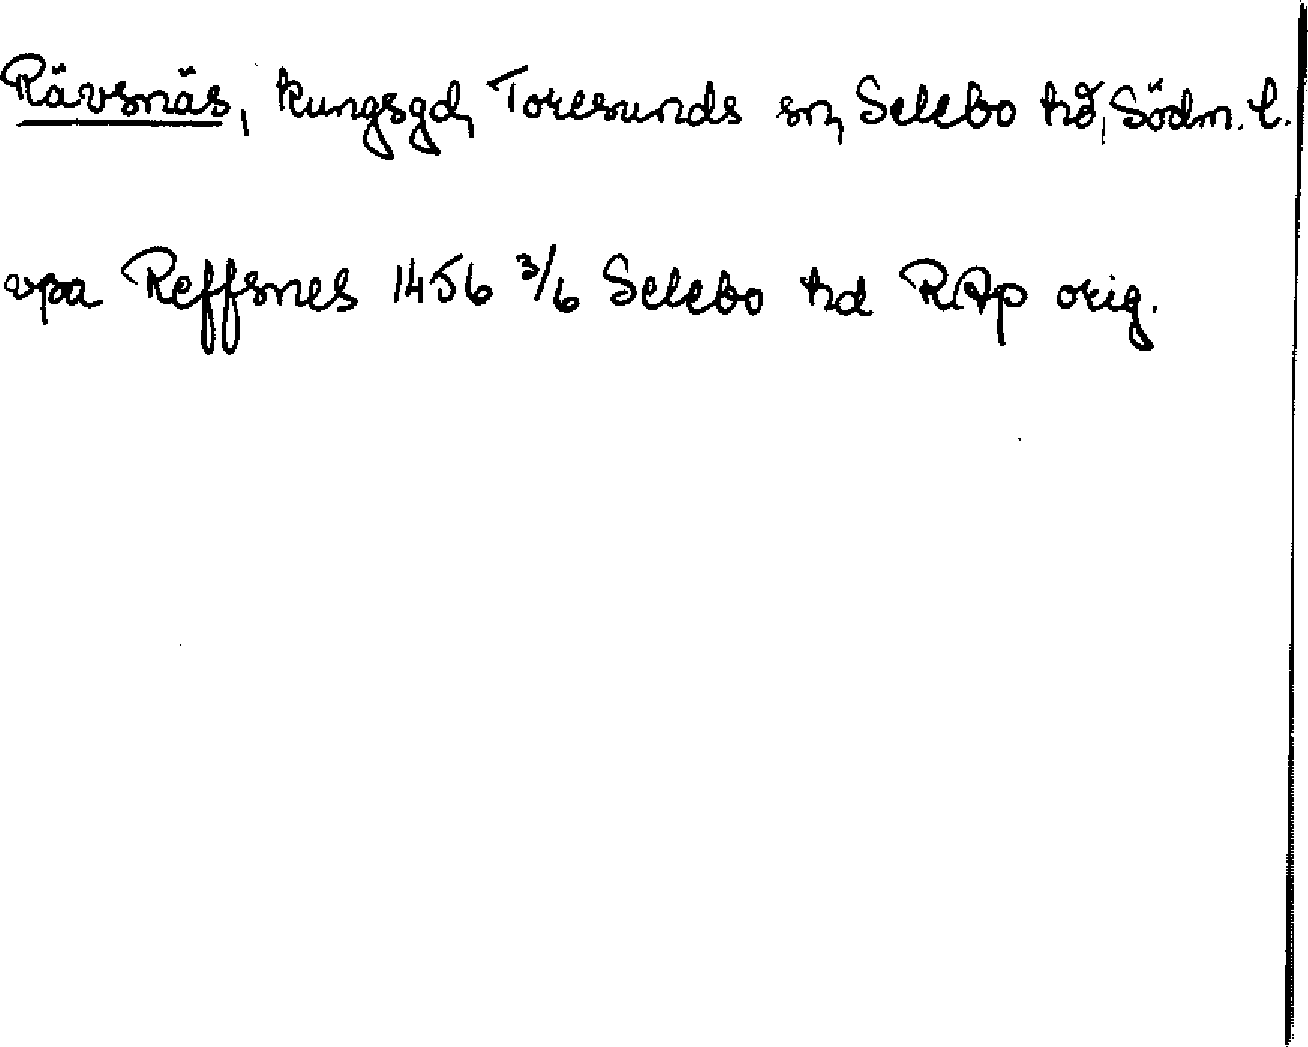 Rävsnäs, kungsgd, Toresunds sn, Selebo hd, Södm. l.
vpa Reffsnes 1456 3/6 Selebo hd RAp orig.